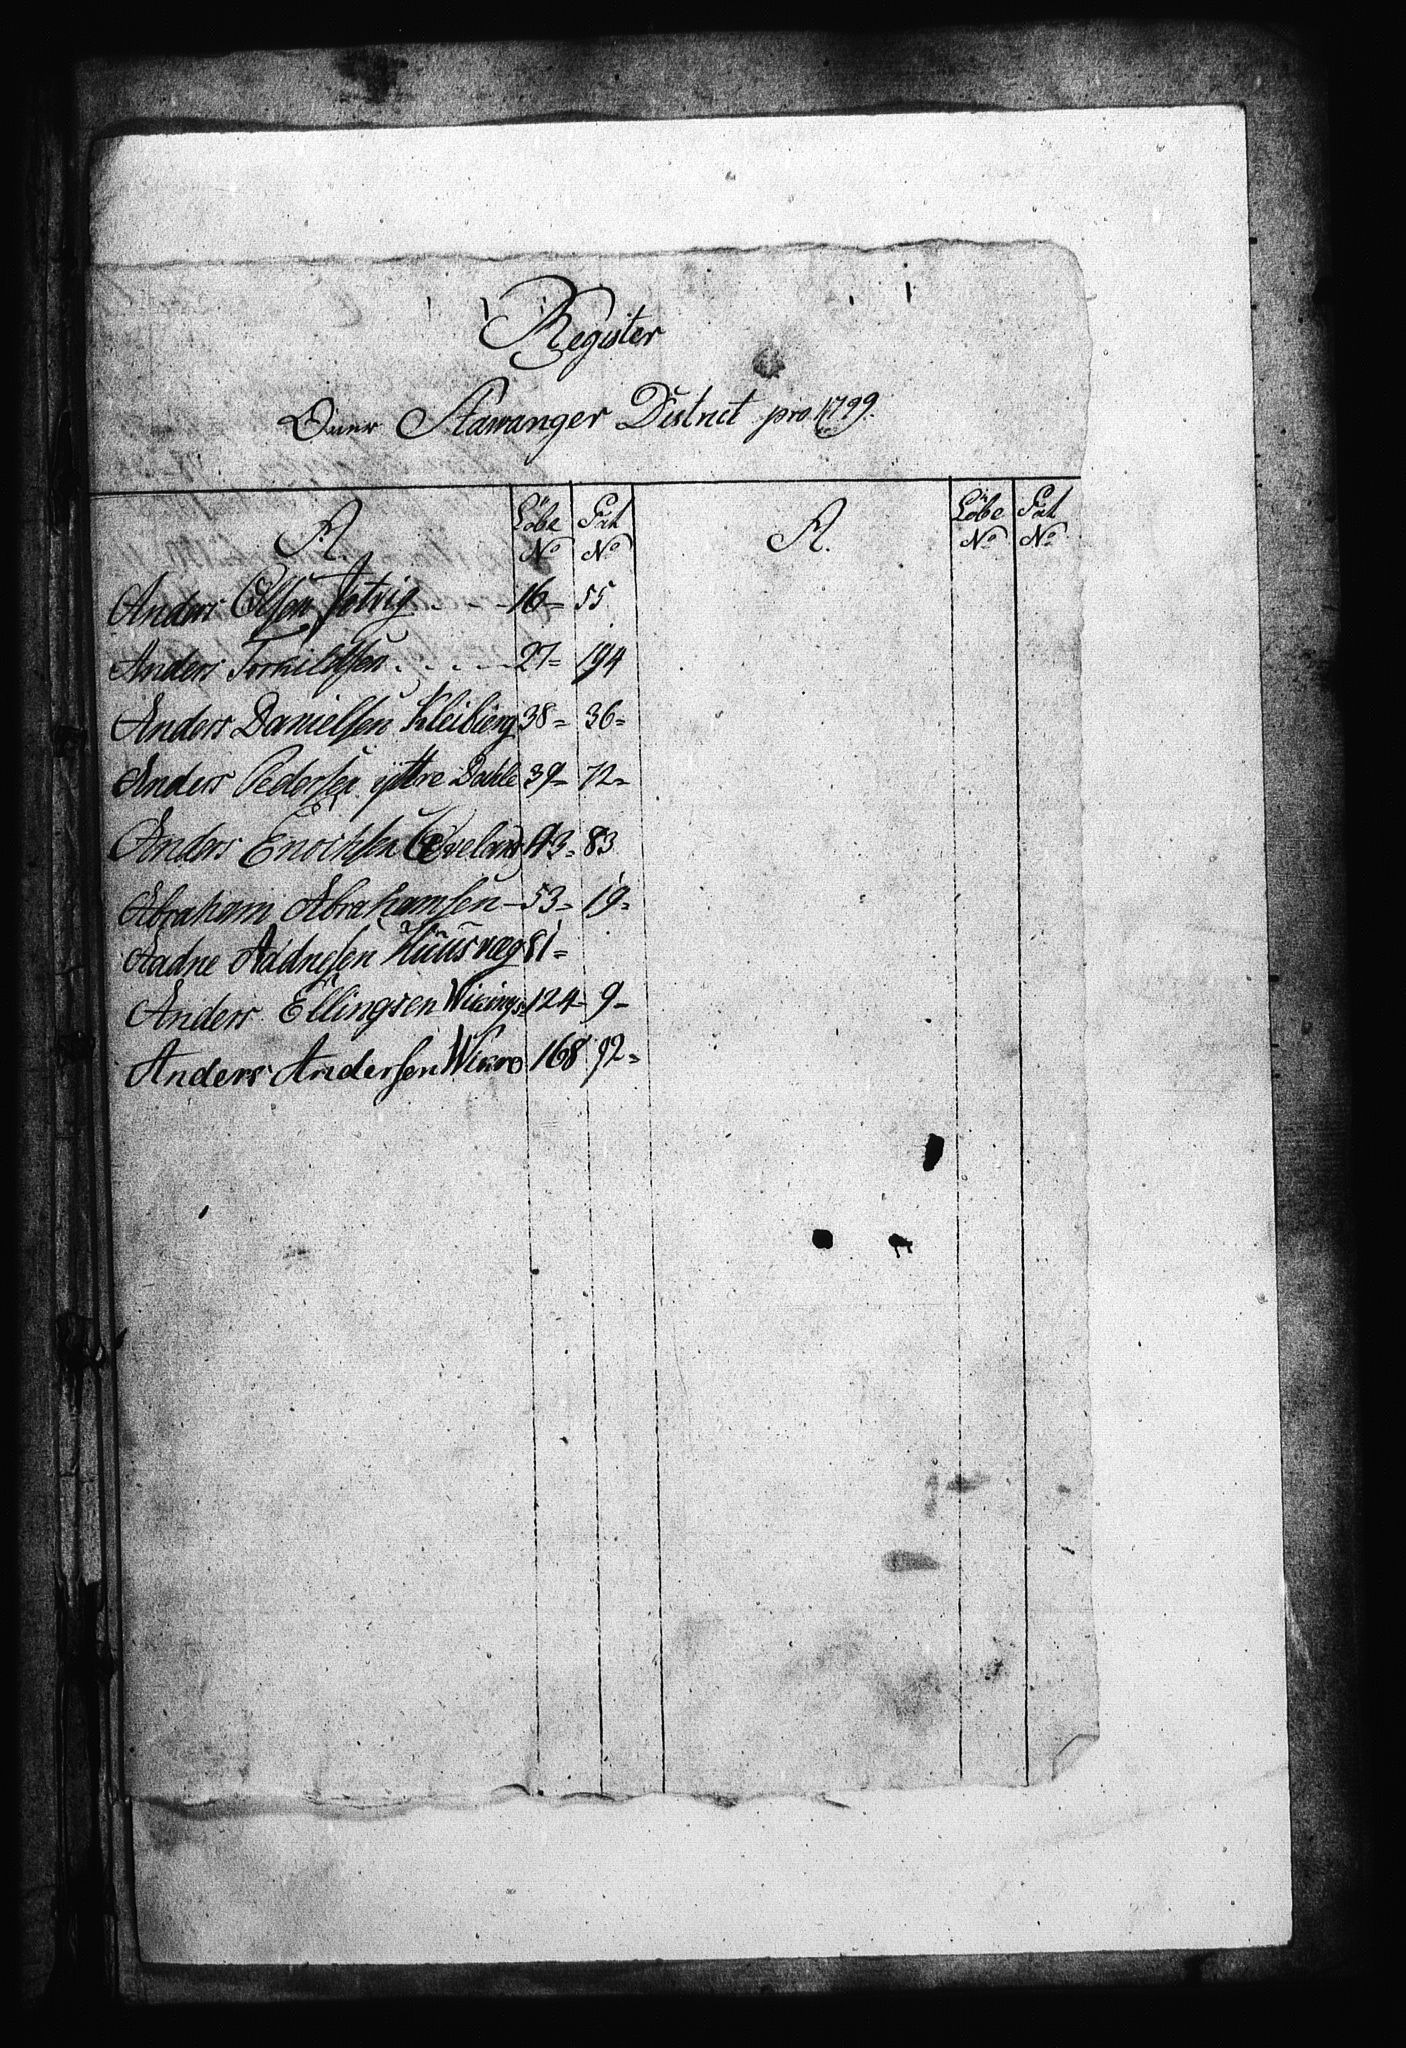 Register
Over Stawanger District pro 1799.
A. Löbe No Pat No A. Löbe No Pat No
Anders Olsen Jotvig - 16= 55
Anders Torkildsen . . . . 27= 194
Anders Danielsen Kleibierg 38= 36=
Anders Pedersen ÿttre Dahle 39= 72=
Anders Enochsen 43= 83
Abraham Abrahamsen - 53= 19=
Aadne Aadnesen Huusveg 81=
Anders Ellingsen Wikings 124= 9-
Anders Andersen Wikro 168 92=